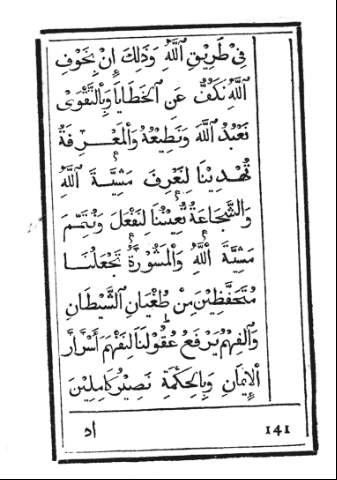 فِيْ طَرِيْقِ ٱللّٰهِ وَذٰلِكَ إِنْ بِخَوْفِ
ٱللّٰهِ نَكُفُّ عَنِ ٱلْخَطَايَا وَبِٱلتَّقْوَىْ
نَعْبُدُ ٱللّٰهَ وَنُطِيْعُهُ وَٱلْمَعْرِفَةُ
تُهْدِيْنَا لِنَعْرِفَ مَشِيَّةَ ٱللّٰهِ
وَٱلشَّجَاعَةُ تُعِيْنُنَا لِنَفْعَلَ وَنُتَمِّمَ
مَشِيَّةَ ٱللّٰهِ وَٱلْمَشُوْرَةُ تَجْعَلُنَا
مُتَحَفِّظِيْنَ مِنْ طُغْيَانِ ٱلشَّيْطَانِ
وَٱلْفِهْمُ يَرْفَعُ عُقُوْلَنَا لِنَفْهَمَ أَسْرَارَ
ٱلْإِيْمَانِ وَبِٱلْحِكْمَةِ نَصِيْرُ كَامِلِيْنَ
141 اد